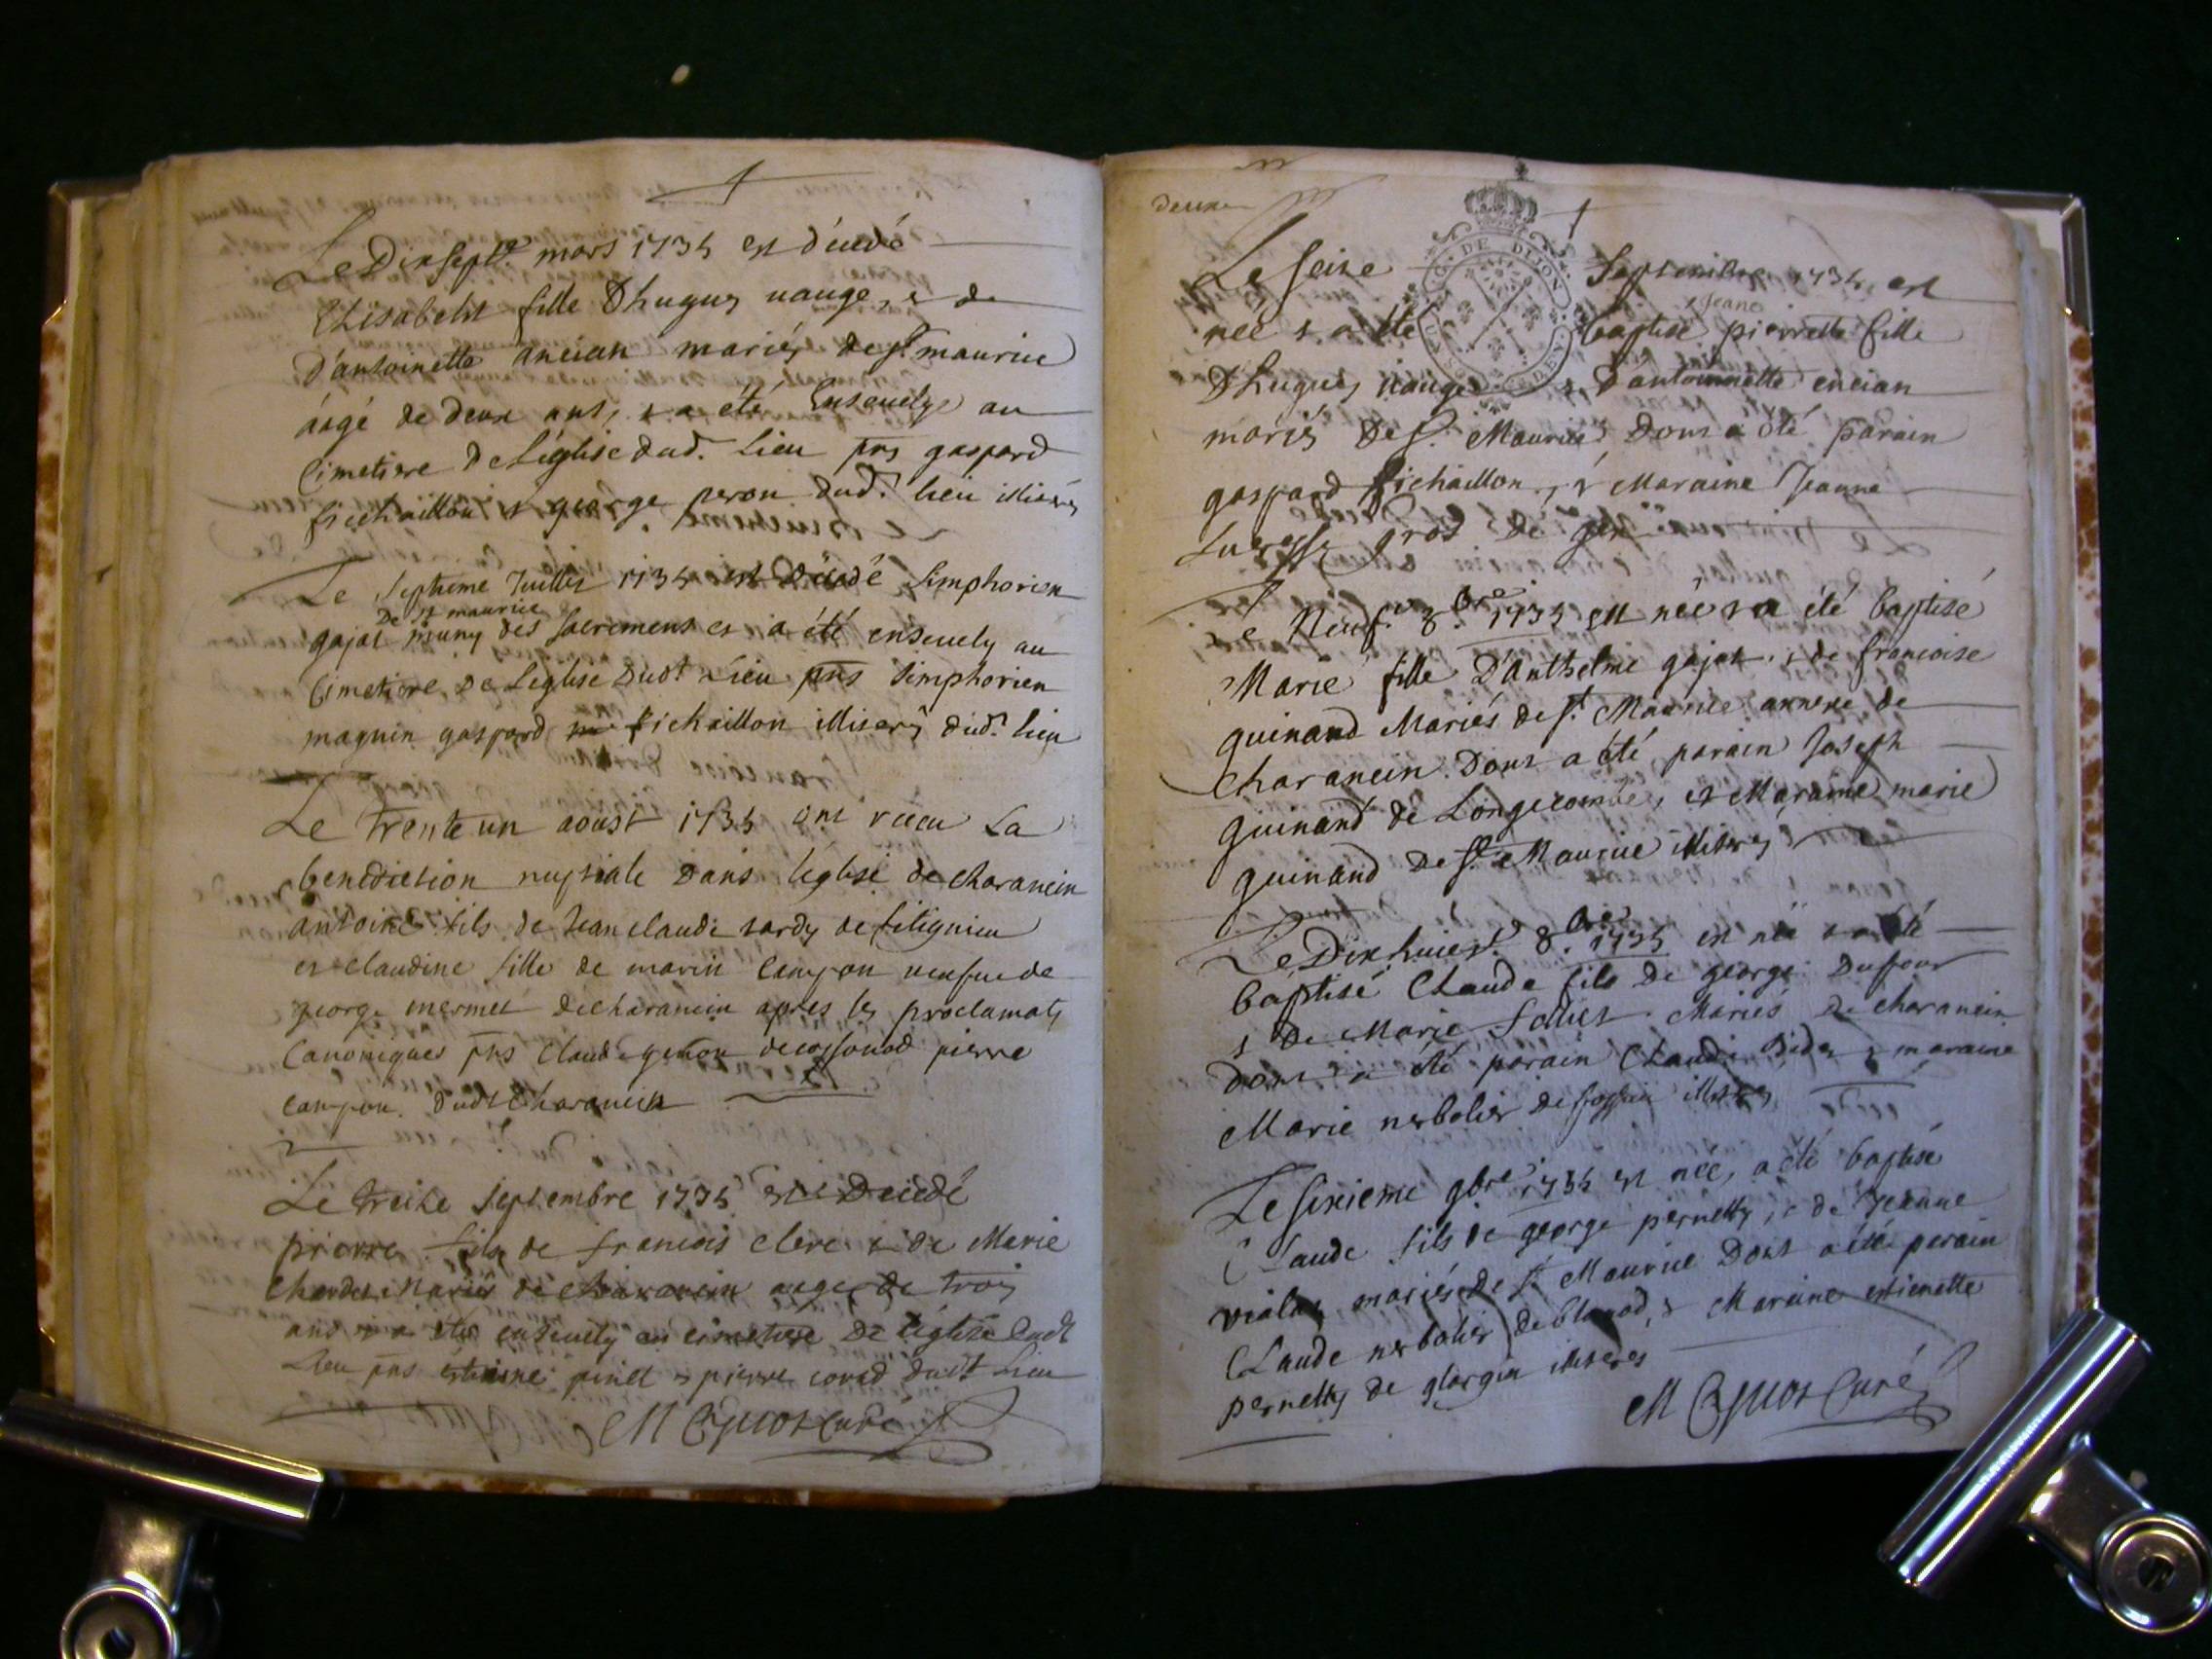 Le Dixsept.e mars 1735 est décédé
Elisabeht fille D'hugues vauge, & de
D'antoinette ancian mariés de St. maurice
áagé de deux ans, & a été Ensevelye au
Cimetiere De L'église dud. Lieu pns gaspard
fichaillon & george peron dud. lieu illiterés
Le septieme Juillet 1735 est Décédé simphorien
De St maurice
gajat muny des sacremens et a été ensevely au
Cimetiere De Léglise Dudt Lieu pns simphorien
magnin gaspard fichaillon illiterés dud. lieu
Le Trente un aoust 1735 ont receu La
benediction nuptiale Dans léglise de charancin
antoine fils de Jean claude tardy de fitignieu
et claudine fille de marin Campon veufve de
george mermet de charancin apres les proclamats
Canoniques pns Claude genon pierre
Campon. Dudt Charancin
Le treize septembre 1735 est Decedé
pierre fils de francois clerc & de Marie
Mariés de Charancin aagé de trois
ans & a été ensevely au cimetiere De léglise dudt
Lieu pns pinet & pierre dudt Lieu
M Curé
deux
G. DE DIJON
Le seize Septembre 1735 est
Jeane
née & a été baptisé pierrette fille
D'hugues vauge & D'antoinnette encian
mariés De St. Maurice Dont a été parain
gaspard fichaillon, & Maraine Jeanne
gros de
Le Neuf. 8.bre 1735 est née & a été baptisé
Marie fille D'anthelme gajat, & de francoise
guinand Mariés de St. Maurice annexe de
Charancin. Dont a été parain Joseph
guinand de Longecombe, et Maraine marie
guinand De St. Maurice illiterés
Le Dixhuict. 8.bre 1735 est née & a été
baptisé Claude fils de george Dufour
& De Marie Mariés De charancin
Dont a été parain Claude & maraine
Marie nerbolier de illiterés
Le sixieme 9bre 1735 est née, a été baptisé
Claude fils de george pernetty, & de Jeanne
violet mariés de St Maurice Dont a été parain
Claude nerbolier de blanod, & Maraine estienette
pernetty de illiteres
M Curé